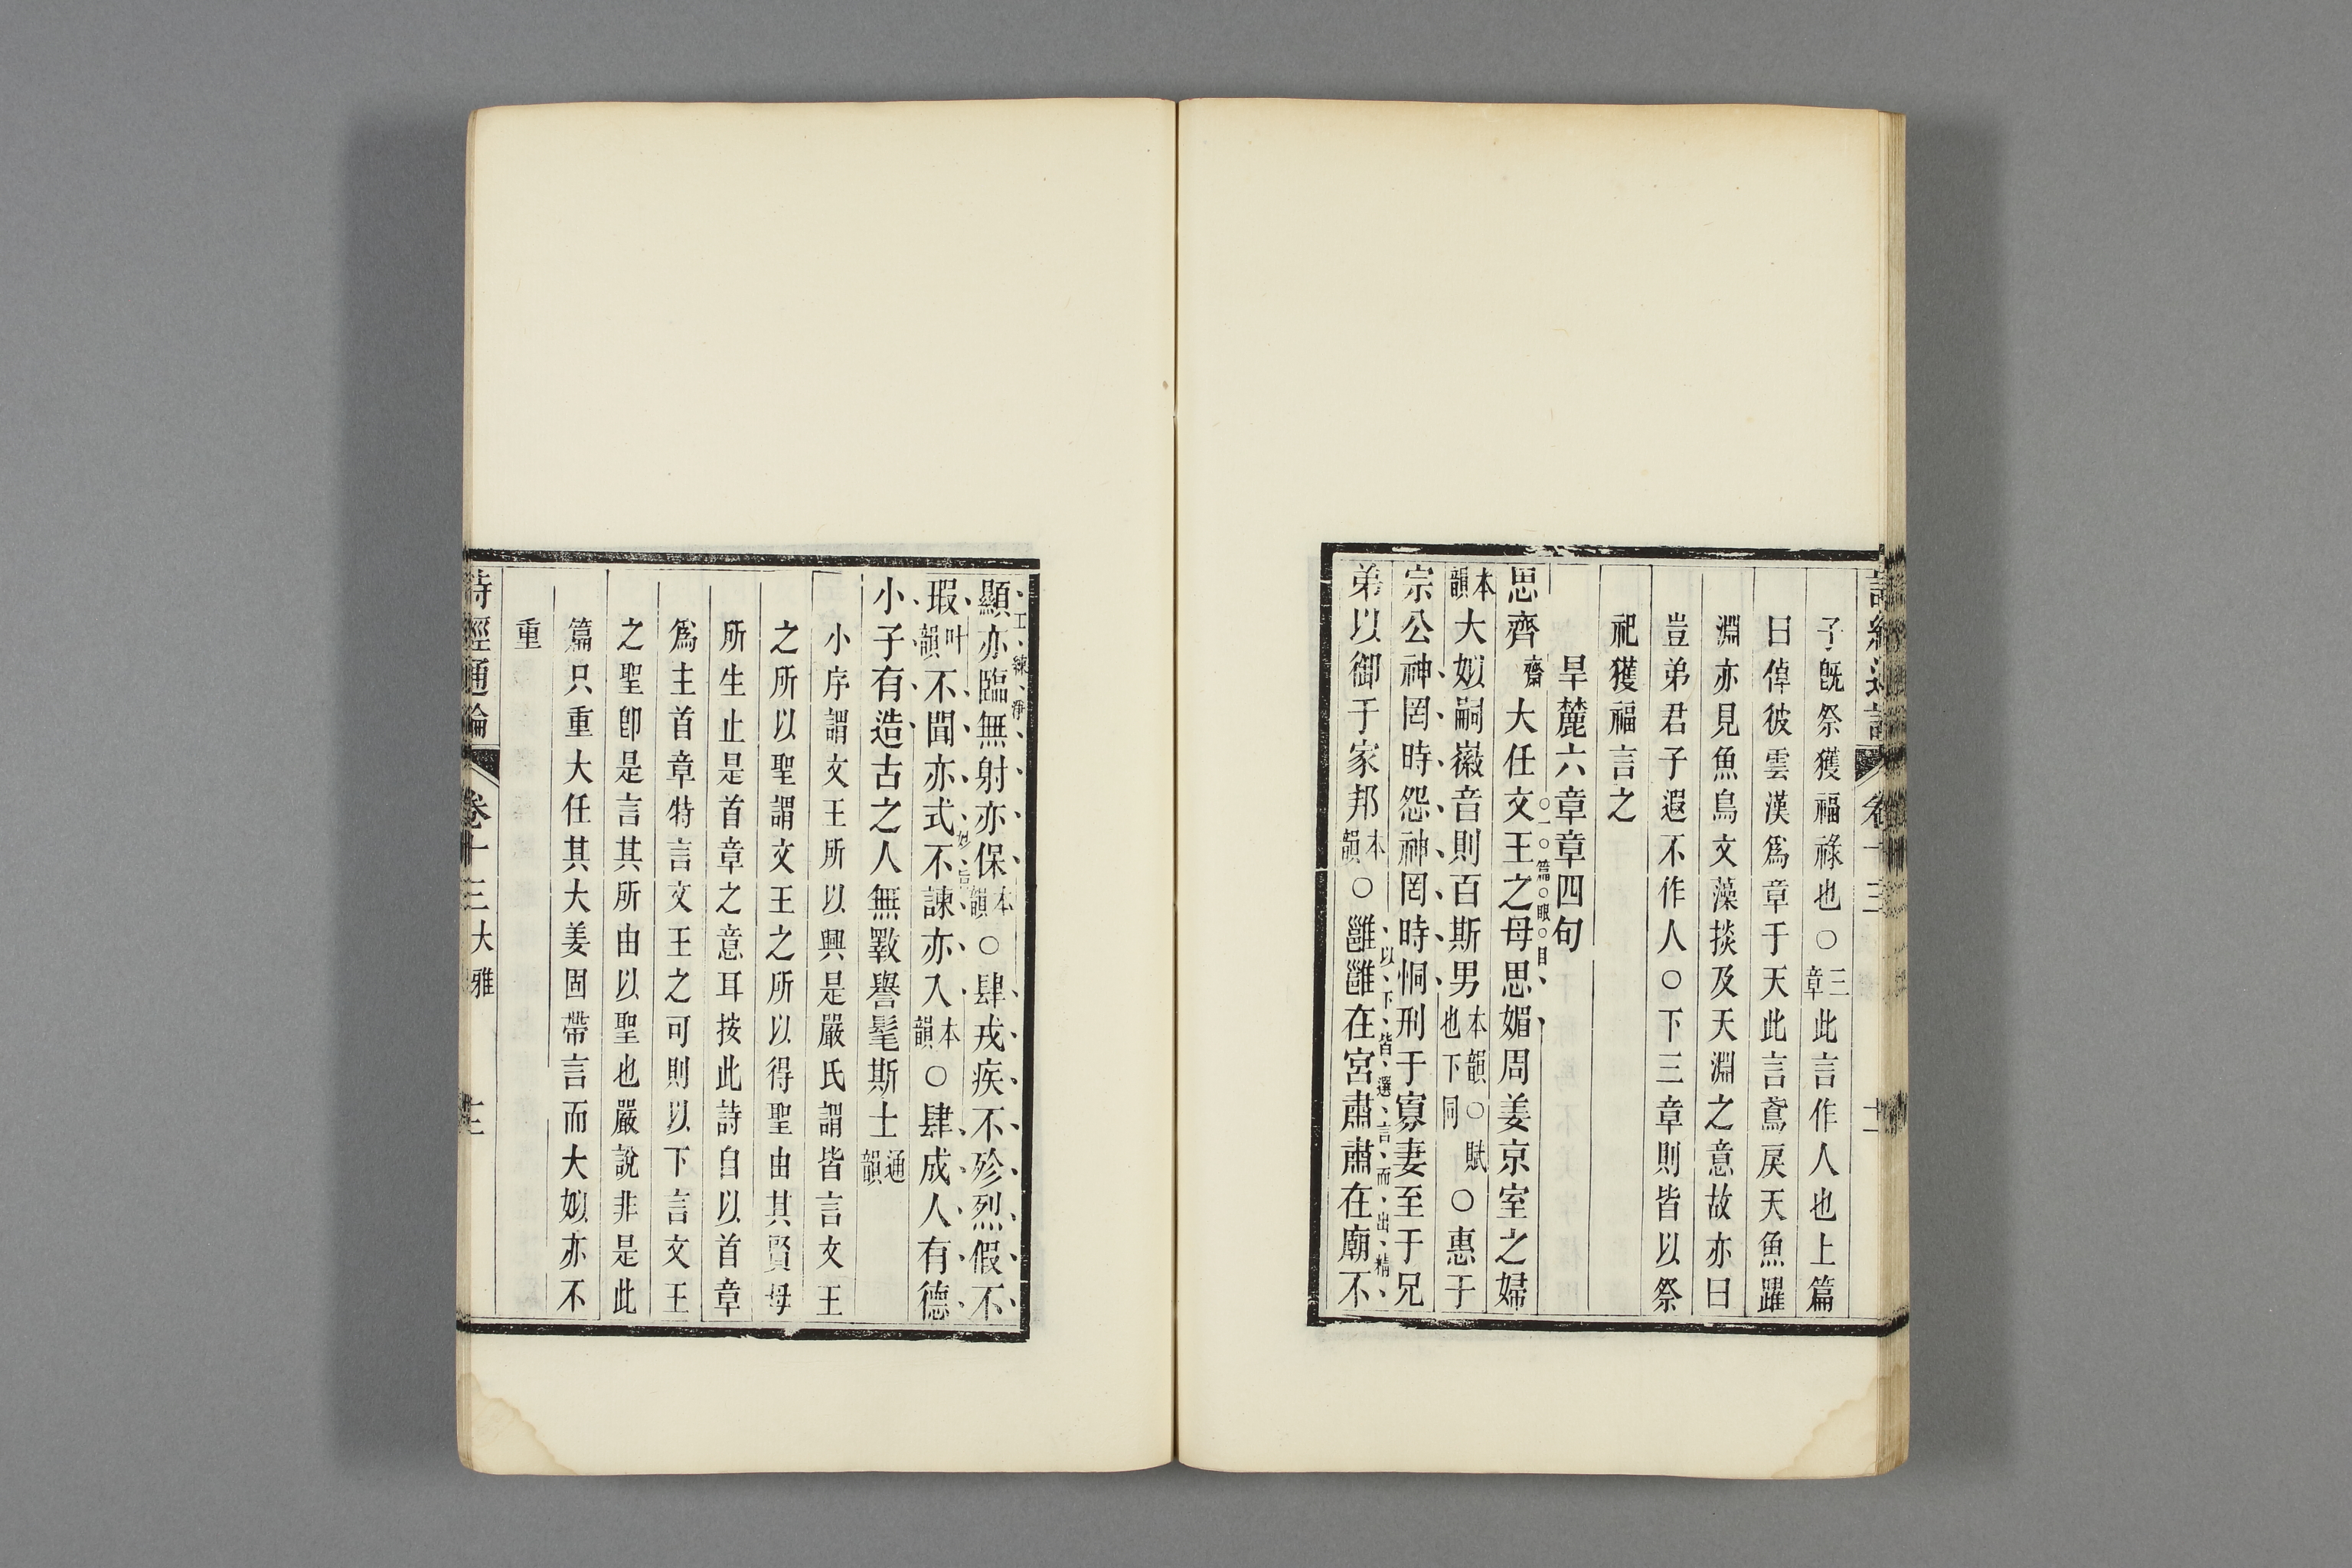 子旣祭獲福祿也○三章此言作人也上篇
曰倬彼雲漢爲章于天此言鳶戾天魚躍
淵亦見魚鳥文藻掞及天淵之意故亦曰
豈弟君子遐不作人○下三章則皆以祭
祀獲福言之
旱麓六章章四句
思齊齋大任文王之母思媚周姜京室之婦
一篇眼目
本韻大姒嗣徽音則百斯男本韻○賦也下同○惠于
宗公神罔時怨神罔時恫刑于寡妻至于兄
以下皆選言而出精
弟以御于家邦本韻○雝雝在宮肅肅在廟不
工練淨
顯亦臨無射亦保本韻○肆戎疾不殄烈假不
瑕叶韻不聞亦式不諫亦入本韻○肆成人有德
小子有造古之人無斁譽髦斯士通韻
小序謂文王所以興是嚴氏謂皆言文王
之所以聖謂文王之所以得聖由其賢母
所生止是首章之意耳按此詩自以首章
爲主首章特言文王之可則以下言文王
之聖卽是言其所由以聖也嚴說非是此
篇只重大任其大姜固帶言而大姒亦不
重
詩經通論 卷十三大雅